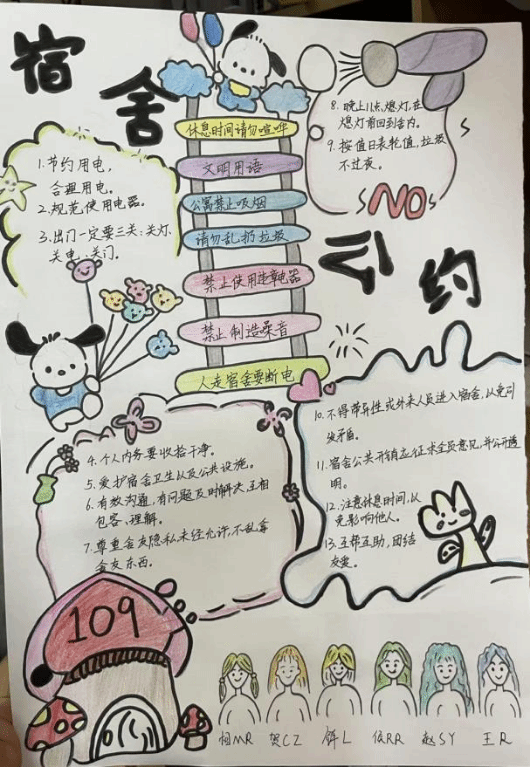 宿舍
公约
休息时间请勿喧哗
文明用语
公寓禁止吸烟
请勿乱扔垃圾
禁止使用违章电器
禁止制造噪音
人走宿舍要断电
1.节约用电,
合理用电。
2.规范使用电器。
3.出门一定要三关:关灯、
关电、关门。
8.晚上11点熄灯,在
熄灯前回到舍内。
9.按值日表轮值,垃圾
不过夜。
NO
4.个人内务要收拾干净。
5.爱护宿舍卫生以及公共设施。
6.有效沟通,有问题及时解决,互相
包容、理解。
7.尊重舍友隐私未经允许,不乱拿
舍友东西。
10.不得带异性或外来人员进入宿舍,以免引
发矛盾。
11.宿舍公共开销应征求全员意见,并公开透
明。
12.注意休息时间,以
免影响他人。
13.互帮互助,团结
友爱。
109
MR
贺CZ
L
RR
赵SY
王R